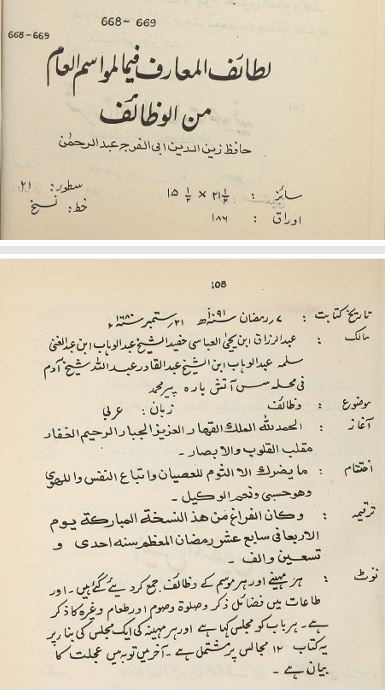 668-669
668-669
لطائف المعارف فیما لمواسم العام
من الوظائف
حافظ زین الدین ابی الفرج عبدالرحمٰن
سائز : ۲۱½ × ۱۵½ سطور: ۲۱
اوراق : ۱۸۶ خط: نسخ
108
تاریخ کتابت : ۷ رمضان ۱۰۹۱ھ ۲۱ ستمبر ۱۶۸۰ء
مالک : عبدالرزاق ابن یحیٰی العباسی حفید الشیخ عبدالوہاب ابن عبدالغنی
سلمہ عبدالوہاب ابن الشیخ عبدالقادر عبداللہ شیخ آدم
فی محلہ آتش بارہ پیر محمد
موضوع : وظائف زبان : عربی
آغاز : الحمدللہ الملک القہار العزیز الجبار الرحیم الغفار
مقلب القلوب والابصار۔
اختتام : ما یضرک الا الثوم للعصیان واتباع النفس واللھوی
وھو حسبی ونعم الوکیل۔
ترقیمہ : وکان الفراغ من ھذ النسخة المبارکة یوم
الاربعا فی سابع عشر رمضان المعظم سنه احدی و
تسعین والف۔
نوٹ : ہر مہینے اور ہر موسم کے وظائف جمع کر دیئے گئے ہیں۔ اور
طاعات میں فضائل ذکر وصلوة وصوم اور طعام وغیرہ کا ذکر
ہے۔ ہر باب کو مجلس کہا ہے اور ہر مہینہ کی ایک مجلس کی بنا پر
یہ کتاب ۱۲ مجالس پر مشتمل ہے۔ آخر میں توبہ میں عجلت کا
بیان ہے۔